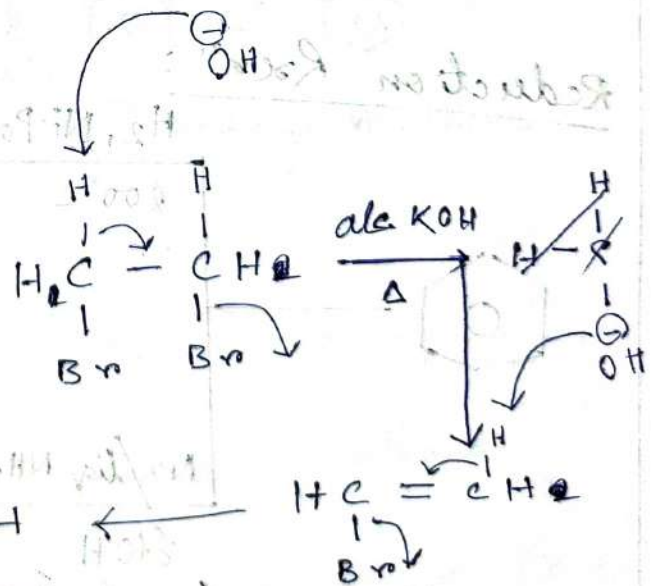 ⊖
OH
H H
H C — C H alc. KOH
Br Br Δ
H
H – C
⊖
OH
H
H C = C H
Br
H